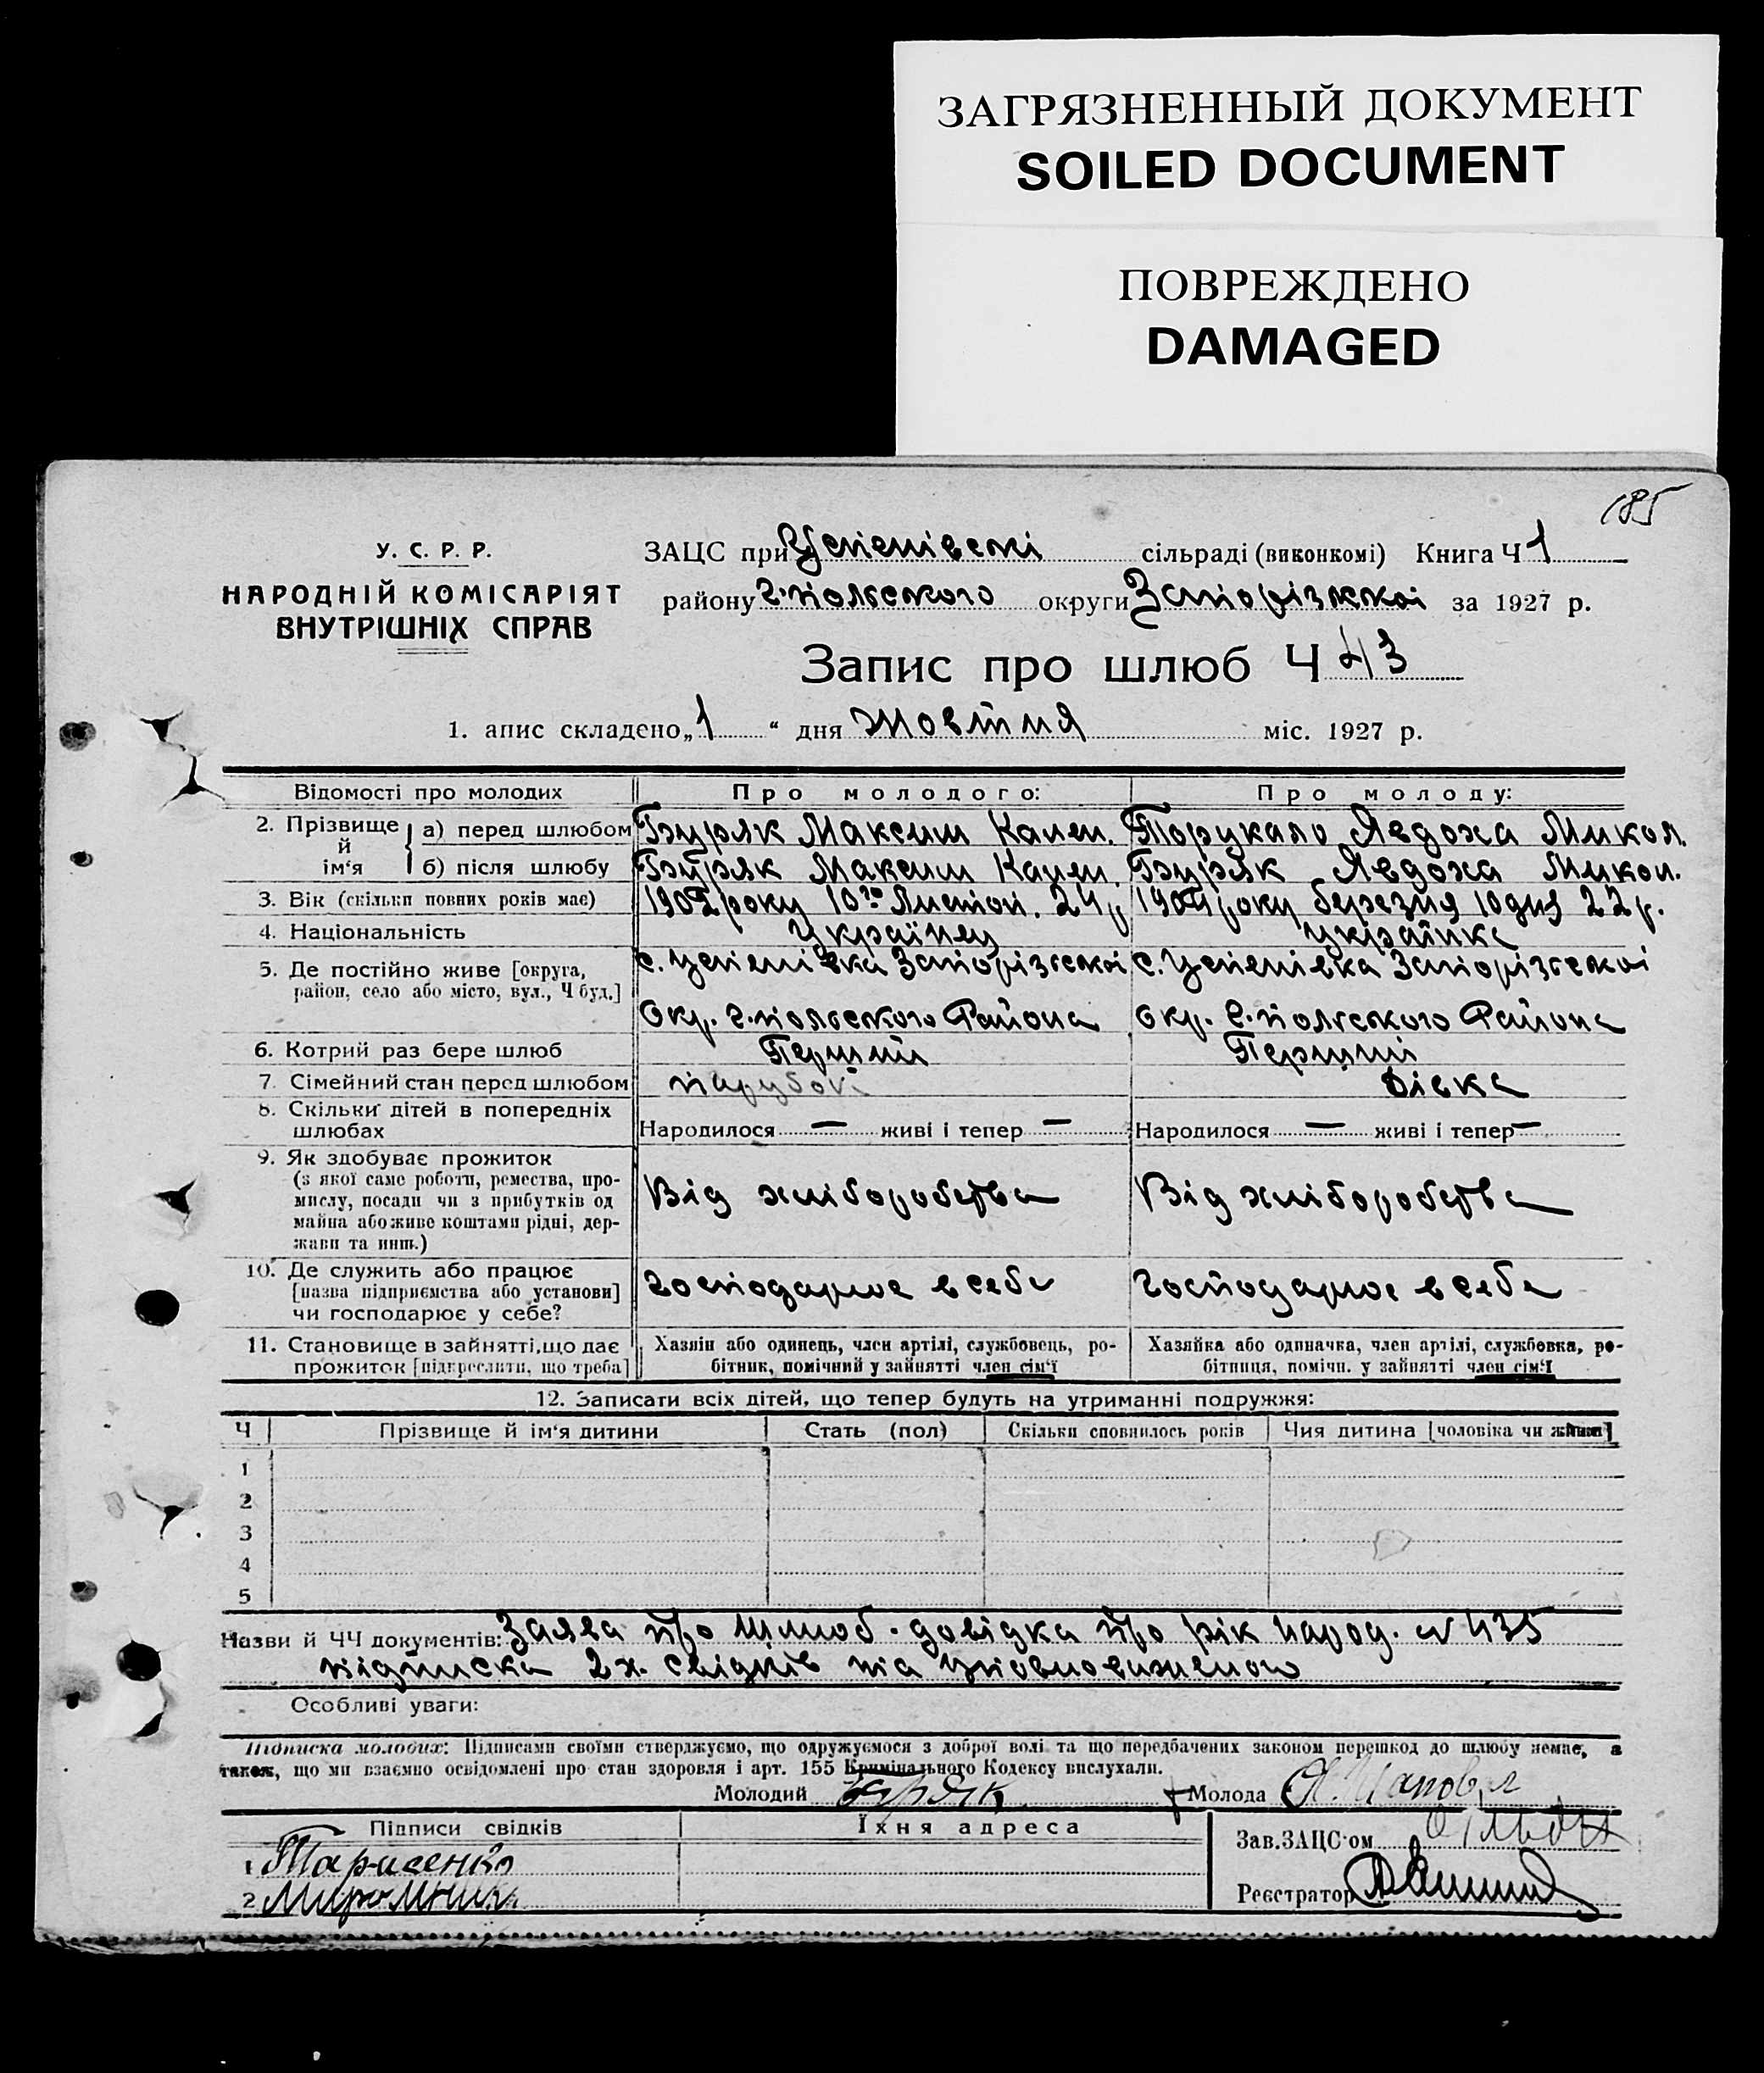 ЗАГРЯЗНЕННЫЙ ДОКУМЕНТ
SOILED DOCUMENT
ПОВРЕЖДЕНО
DAMAGED
185
У. С. Р. Р.
НАРОДНІЙ КОМІСАРІЯТ
ВНУТРІШНІХ СПРАВ
ЗАЦС при Успенівскі сільраді (виконкомі) Книга Ч 1
району Г-польского округи Запорізької за 1927 р.
Запис про шлюб Ч 43
1. апис складено „1“ дня жовтня міс. 1927 р.
Відомості про молодих Про молодого: Про молоду:
2. Прізвище й ім‘я
а) перед шлюбом Буряк Максим Явдоха Микол.
б) після шлюбу Буряк Максим Буряк Явдоха Микол.
3. Вік (скільки повних років має) року 10го Листоп. 24 р 1904 року березня 10 дня 22 р.
4. Національність Українец Українка
5. Де постійно живе [округа, район, село або місто, вул., Ч буд.] с. Успенівка Запорізської с. Успенівка Запорізської
Окр. Г-польского Района Окр. Г-польского Района
6. Котрий раз бере шлюб Перший Перший
7. Сімейний стан перед шлюбом парубок Дівка
8. Скільки дітей в попередніх шлюбах Народилося — живі і тепер — Народилося — живі і тепер —
9. Як здобуває прожиток
(з якої саме роботи, ремества, про-
мислу, посади чи з прибутків од
майна або живе коштами рідні, дер-
жави та инш.)
Від хліборобства Від хліборобства
10. Де служить або працює
[назва підприємства або установи]
чи господарює у себе?
Господарює в себе Господарює в себе
11. Становище в зайнятті, що дає
прожиток [підкреслити, що треба]
Хазяін або одинець, член артілі, службовець, ро-
бітник, помічний у зайнятті член сім‘ї
Хазяйка або одиначка, член артілі, службовка, ро-
бітниця, помічн. у зайнятті член сім‘ї
12. Записати всіх дітей, що тепер будуть на утриманні подружжя:
Ч Прізвище й ім‘я дитини Стать (пол) Скільки сповнилось років Чия дитина [чоловіка чи жінки]
1
2
3
4
5
Назви й ЧЧ документів: Заява про шлюб. довідка про рік народ. N 435
підписка 2х. свідків та уповновиженого
Особливі уваги:
Підписка молодих: Підписами своїми стверджуємо, що одружуємося з доброї волі та що передбачених законом перешкод до шлюбу немає, а
також, що ми взаємно освідомлені про стан здоровля і арт. 155 Кримінального Кодексу вислухали.
Молодий Буряк Молода
Підписи свідків Їхня адреса
Зав. ЗАЦС‘ом
1 Тарасенко
2
Реєстратор